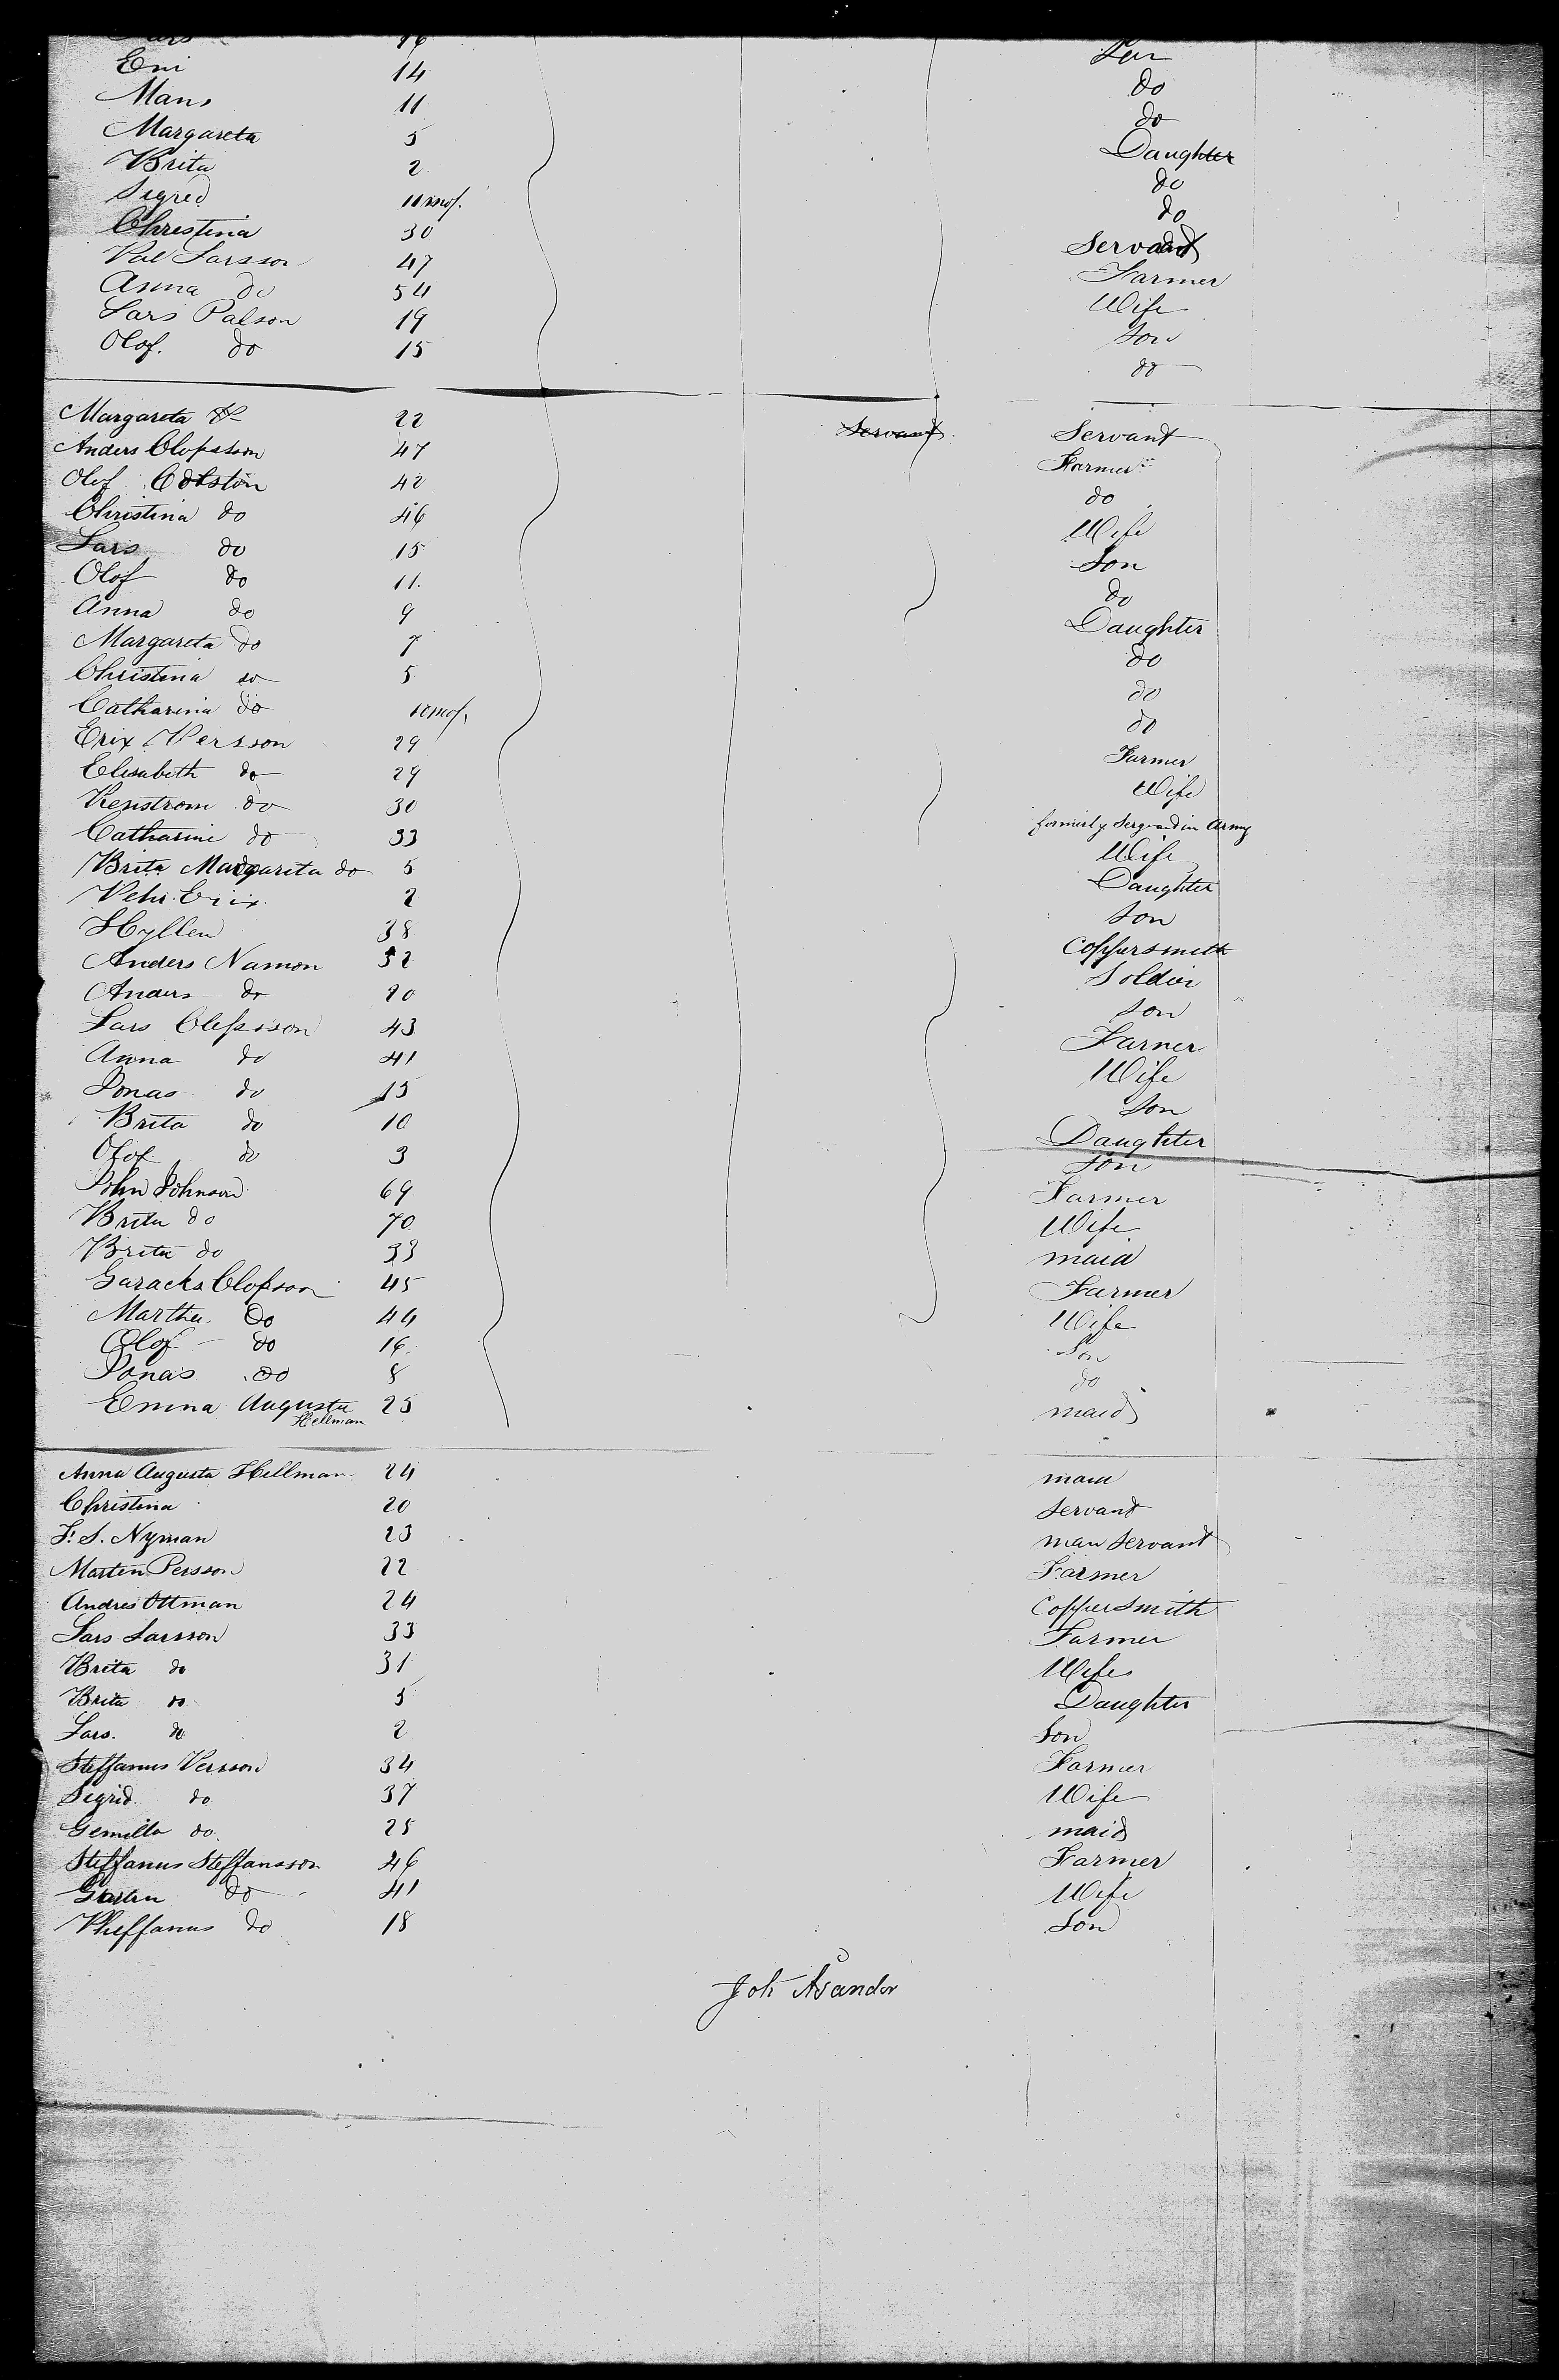 Lars 16 Son
Eni 14 do
Mans 11 do
Margareta 5 Daughter
Brita 2 do
Sigred 11 mos. do
Christina 30 Servant
Pal Larsson 47 Farmer
Anna do 54 Wife
Lars Palson 19 Son
Olof. do 15 do
Margareta 22 Servant Servant
Anders Olofsson 47 Farmer
Olof 42 do
Christina do 46 Wife
Lars do 15 Son
Olof do 11. do
Anna do 9 Daughter
Margareta do 7 do
Christina do 5 do
Catharina do mos. do
Erix Persson 29 Farmer
Elisabeth do 29 Wife
Kenstrom do 30 formerly Sergeand in Army
Catharine do 33 Wife
Brita Margareta do 5 Daughter
Pehr Erix 2 Son
Hyllen 38 Coppersmith
Anders Namon 52 Soldier
Anders do 20 Son
Lars Olofsson 43 Farmer
Anna do 41 Wife
Jonas do 15 Son
Brita do 10 Daughter
Olof do 3 Son
John Johnson 69 Farmer
Brita do 70 Wife
Brita do 33 maid
Olofson 45 Farmer
Martha Do 44 Wife
Olof do 16. Son
Jonas do 8 do
Emma Augusta 25 maid
Hellman
Anna Augusta Hellman 24 maid
Christina 20 Servant
F. S. Nyman 23 man Servant
Marten Persson 22 Farmer
Andres Ottman 24 Coppersmith
Lars Larsson 33 Farmer
Brita do 31 Wife
Brita do 5 Daughter
Lars. do 2 Son
Steffanus Persson 34 Farmer
Sigrid do 37 Wife
Gemilla do. 25 maid
Steffanus Steffansson 46 Farmer
do 41 Wife
do 18 Son
Joh Åsander